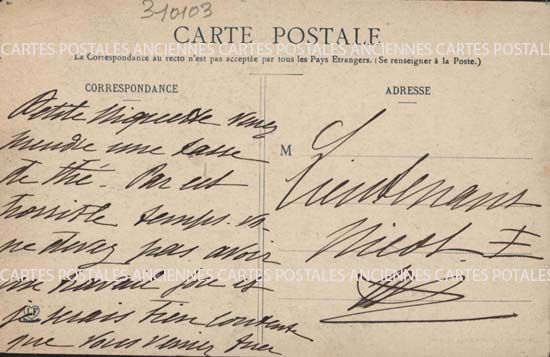 310103
CARTE POSTALE
La Correspondance au recto n'est pas acceptée par tous les Pays Etrangers. (Se renseigner à la Poste.)
CORRESPONDANCE
ADRESSE
Petite venez
prendre une tasse
de thé. Par cet
horrible temps
ne devez pas avoir
un travail fou et
je serais bien contente
que vous veniez
M Lieutenant
Nicot
LF
CARTES POSTALES ANCIENNES CARTES POSTALES ANCIENNES CARTES POSTALES
CARTES POSTALES ANCIENNES CARTES POSTALES ANCIENNES CARTES POTALES